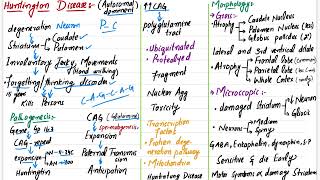 Huntington Disease: (Autosomal dominant)
degeneration Neuron P-C
Striatum → Caudate
→ Putamen
Involuntary Jerky Movements
(Hand writhing)
Forgetting/thinking disorder
15 years
Kills Persons C-A-G-C-A-G
Pathogenesis:-
Gene 4p 16.3
CAG → repeat
Expansion
HTT
Huntington
CAG (Glutamine)
spermatogenesis
Expansion
Paternal Transmission
Anticipation
↑↑ CAG
polyglutamine tract
Ubiquitinated
Proteolyzed
Fragment
Nuclear Agg
Toxicity
- Transcription factor
- Protein degeneration pathway
- Mitochondria
Huntington Disease
Morphology:-
Gross:-
Atrophy → Caudate Nucleus
→ Putamen Nucleus
→ Globus Pallidus
Lateral and 3rd ventricle dilate
Atrophy → Frontal Lobe (common)
→ Parietal Lobe
Microscopic:-
damaged Striatum → Neuron
→ Gliosis
Neurons → Medium
→ Spiny
GABA, Enkephalin, dynorphin, S.P
Sensitive & die Early
Motor Symptoms as damage Striatum